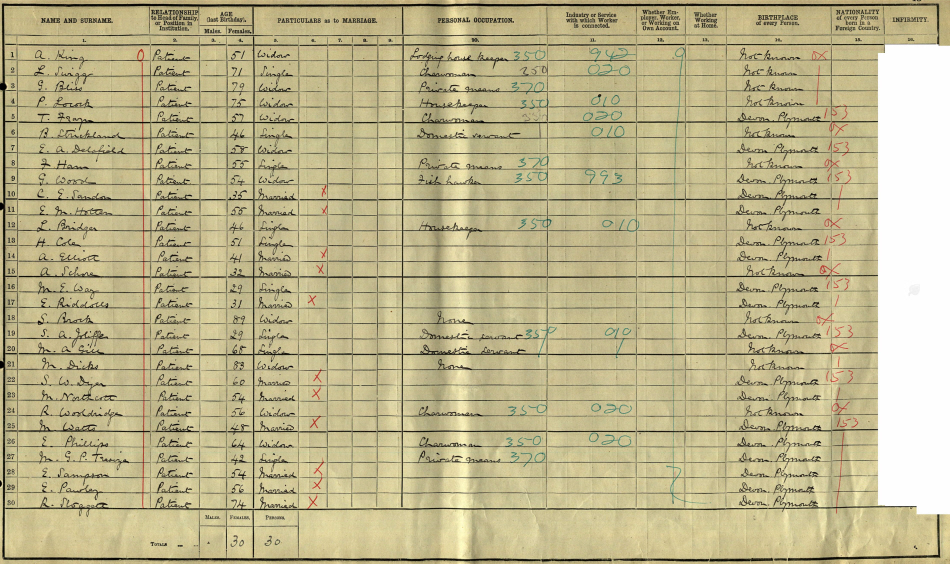 NAME AND SURNAME. RELATIONSHIP to Head of Family, or Position in Institution. AGE (last Birthday). PARTICULARS as to MARRIAGE. PERSONAL OCCUPATION. Industry or Service with which Worker is connected. Whether Employer, Worker, or Working on Own Account. Whether Working at Home. BIRTHPLACE of every Person. NATIONALITY of every Person born in a Foreign Country. INFIRMITY.
Males. Females.
1. 2. 3. 4. 5. 6. 7. 8. 9. 10. 11. 12. 13. 14. 15. 16.
1 A. King 0 Patient 51 Widow Lodging house keeper 350 942 9 Not known 0x
2 L. Patient 71 Single Charwoman 350 020 Not known
3 G. Bliss Patient 79 Widow Private means 370 Not known
4 P. Patient 75 Widow Housekeeper 350 010 Not known
5 T. Patient 57 Widow Charwoman 020 Devon. Plymouth 153
6 B. Strickland Patient 46 Single Domestic servant 010 Not known 0x
7 E. A. Delafield Patient 58 Widow Devon. Plymouth 153
8 Ham Patient 55 Single Private means 370 Not known 0x
9 G. Wood Patient 54 Widow Fish hawker 350 993 Devon. Plymouth 153
10 C. E. Sandon Patient 35 Married x Devon. Plymouth
11 E. M. Patient 55 Married x Devon. Plymouth
12 L. Bridger Patient 46 Single Housekeeper 350 010 Not known 0x
13 H. Cole Patient 51 Single Devon. Plymouth 153
14 A. Elliott Patient 41 Married x Devon. Plymouth
15 A. Patient 32 Married x Not known 0x
16 M. E. Way Patient 29 Single Devon. Plymouth 153
17 E. Riddolls Patient 31 Married x Devon. Plymouth
18 S. Brock Patient 89 Widow None Not known 0x
19 S. A. Jolliffe Patient 29 Single Domestic servant 350 010 Devon. Plymouth 153
20 M. A. Gill Patient 68 Single Domestic servant Not known 0x
21 M. Dicks Patient 83 Widow None Not known
22 S. W. Dyer Patient 60 Married x Devon. Plymouth 153
23 M. Northcott Patient 54 Married x Devon. Plymouth
24 R. Wooldridge Patient 56 Widow Charwoman 350 020 Not known 0x
25 M. Watts Patient 48 Married x Devon. Plymouth 153
26 E. Phillips Patient 64 Widow Charwoman 350 020 Devon. Plymouth
27 M. G. P. Patient 42 Single Private means 370 Devon. Plymouth
28 E. Sampson Patient 54 Married x Devon. Plymouth
29 E. Pawley Patient 56 Married x Devon. Plymouth
30 R. Patient 74 Married x Devon. Plymouth
Males. Females. Persons.
Totals 30 30